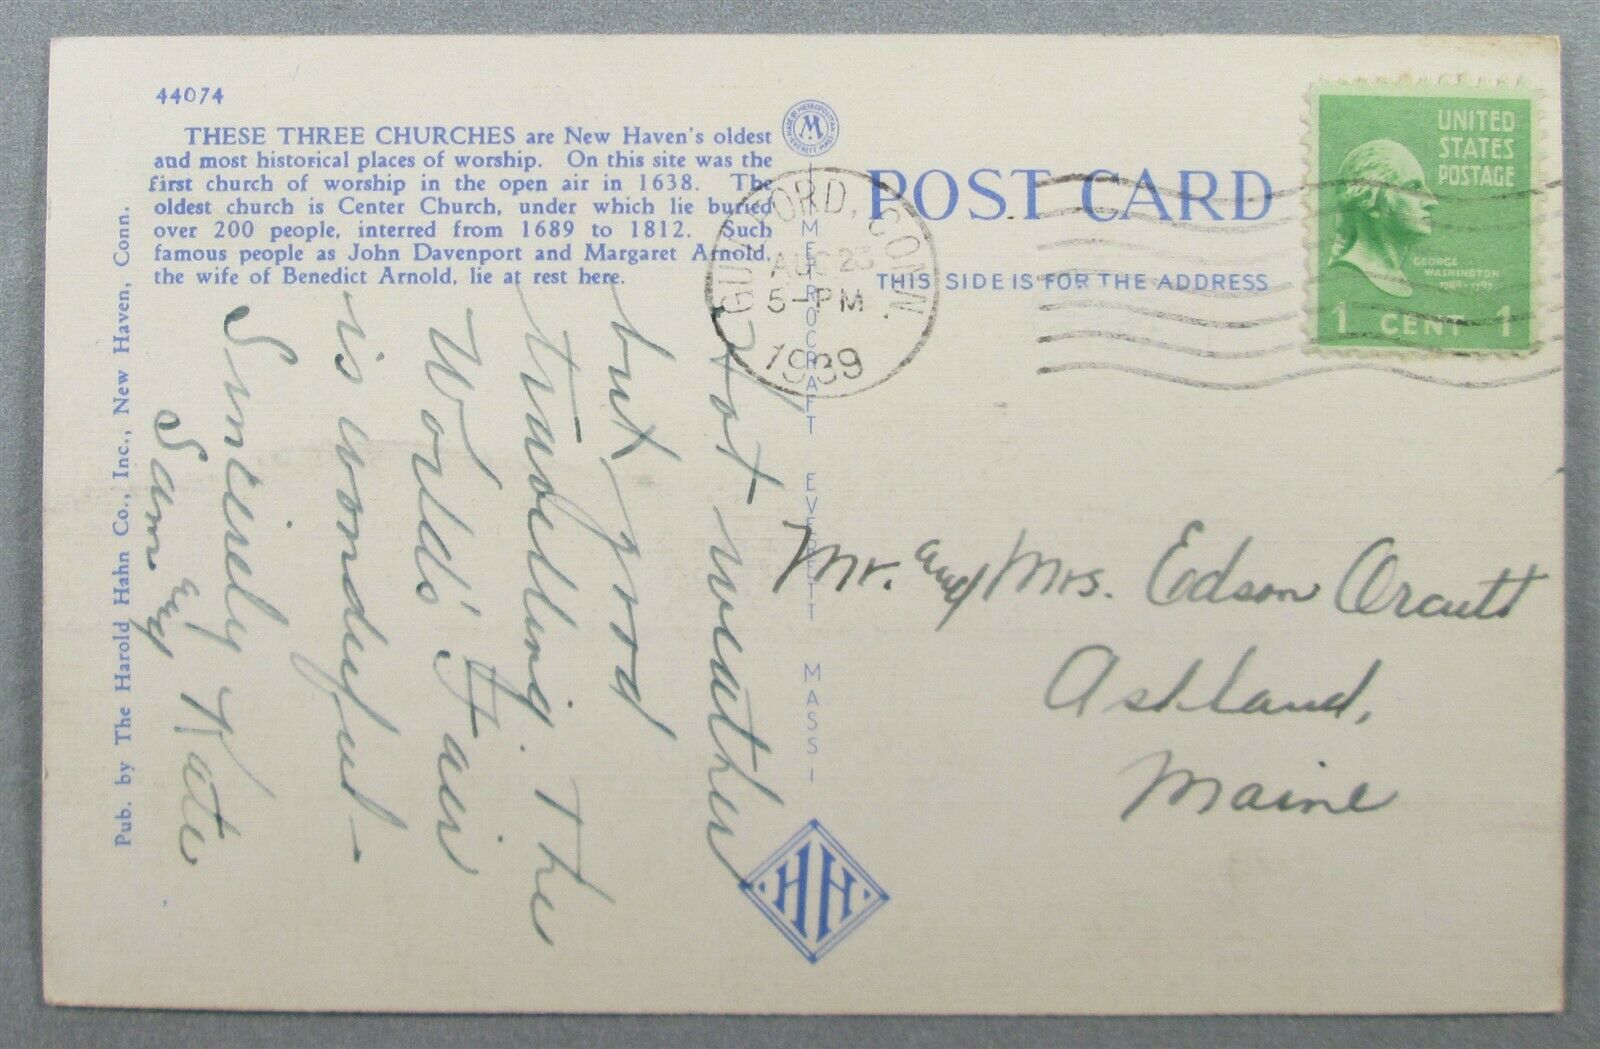 44074
THESE THREE CHURCHES are New Haven's oldest
and most historical places of worship. On this site was the
first church of worship in the open air in 1638. The
oldest church is Center Church, under which lie buried
over 200 people, interred from 1689 to 1812. Such
famous people as John Davenport and Margaret Arnold,
the wife of Benedict Arnold, lie at rest here.
Hot weather
but good
travelling. The
World's Fair
is wonderful-
Sincerely Kate
Sam and
Pub. by The Harold Hahn Co., Inc., New Haven, Conn.
MADE BY METROPOLITAN
M
EVERETT, MASS.
METROCRAFT EVERETT MASS
HH
GUILFORD, CONN.
AUG 23
5-PM
1939
POST CARD
THIS SIDE IS FOR THE ADDRESS
UNITED
STATES
POSTAGE
GEORGE
WASHINGTON
1789-1797
1 CENT 1
Mr. and Mrs. Edson Orcutt
Ashland,
Maine